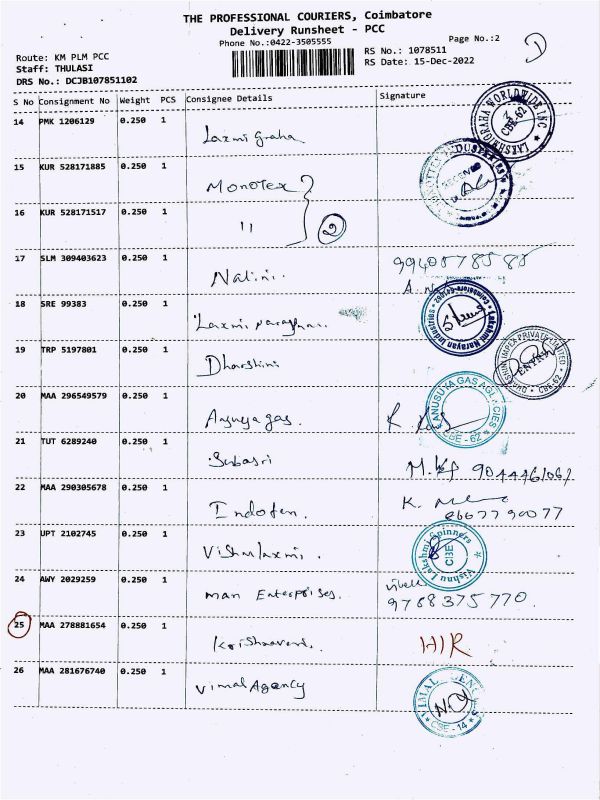 THE PROFESSIONAL COURIERS, Coimbatore
Delivery Runsheet - PCC
Phone No.:0422-3505555
Page No.:2
Route: KM PLM PCC
RS No.: 1078511
Staff: THULASI
RS Date: 15-Dec-2022
DRS No.: DCJB107851102
S No Consignment No Weight PCS Consignee Details Signature
14 PMK 1206129 0.250 1
Laxmi graha
LAKSHMIGRAHA WORLDWIDE INC CBE-62
15 KUR 528171885 0.250 1
Monotex
RECEIVED
16 KUR 528171517 0.250 1
" 2
17 SLM 309403623 0.250 1
Nalini.
9940578585
18 SRE 99383 0.250 1
Laxmi narayhan.
Lakshmi Narayan Industries Coimbatore
19 TRP 5197801 0.250 1
Dharshini
IMPEX PRIVATE LIMITED ENTRY CBE-62
20 MAA 296549579 0.250 1
Anusuya gas.
ANUSUYA GAS AGENCIES CBE - 62
21 TUT 6289240 0.250 1
Subasri
22 MAA 290305678 0.250 1
Indofen.
8667790077
23 UPT 2102745 0.250 1
Vishnulaxmi.
Vishnu Lakshmi Spinners CBE
24 AWY 2029259 0.250 1
man Enterprises.
9788375770.
25 MAA 278881654 0.250 1
H/R
26 MAA 281676740 0.250 1
Vimal Agency
CBE - 14